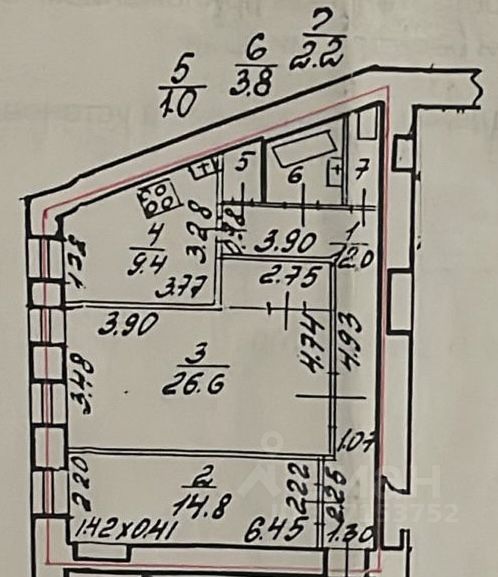 7
2.2
6
3.8
5
1.0
5
6
7
4
9.4
3.28
1.48
3.90
1
12.0
1.38
3.77
2.75
3.90
3
26.6
4.74
4.93
3.48
1.07
2
14.8
2.20
2.22
2.25
1.42x0.41
6.45
1.30